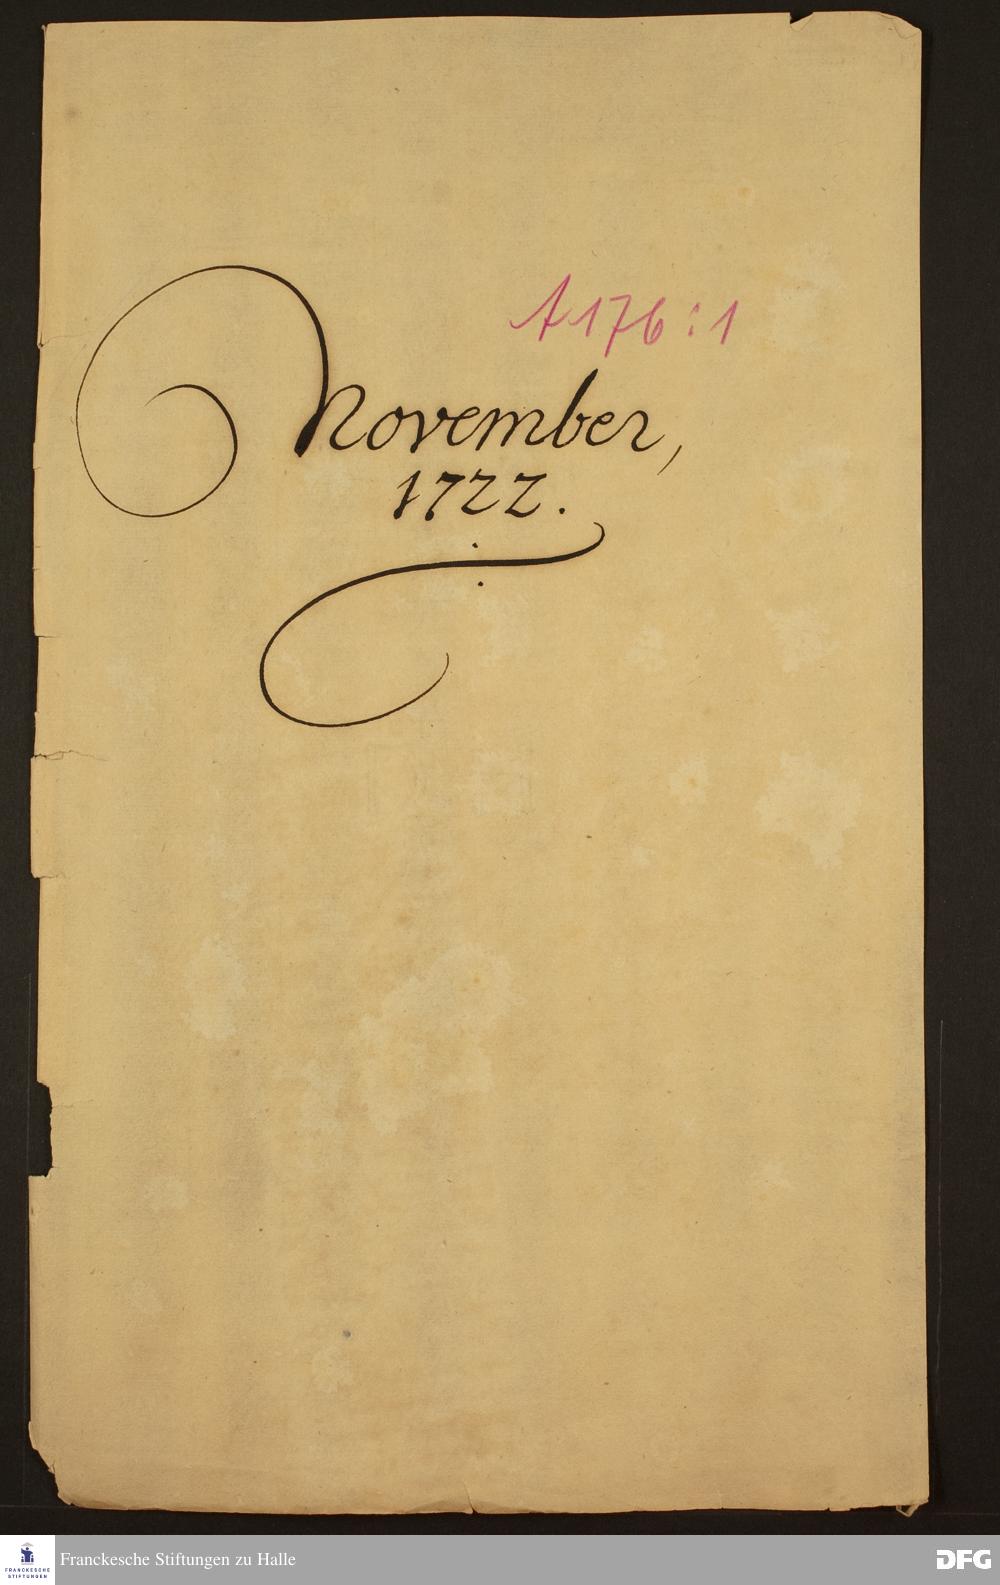 A 176:1
November,
1722.
Franckesche Stiftungen zu Halle
FRANCKESCHE
STIFTUNGEN
DFG